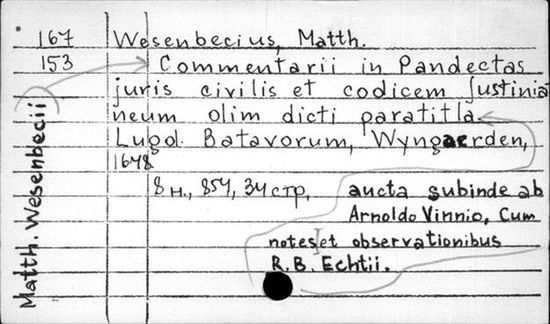 167 Wesenbecius, Matth.
153 Commentarii in Pandectas
juris civilis et codicem Justinia
neum olim dicti paratitla.
Lugd. Batavorum, Wyngaerden,
1648
8 н., 854, 34 стр.
aucta subinde ab
Arnoldo Vinnio, Cum
notes et observationibus
R. B. Echtii.
Matth. Wesenbecii